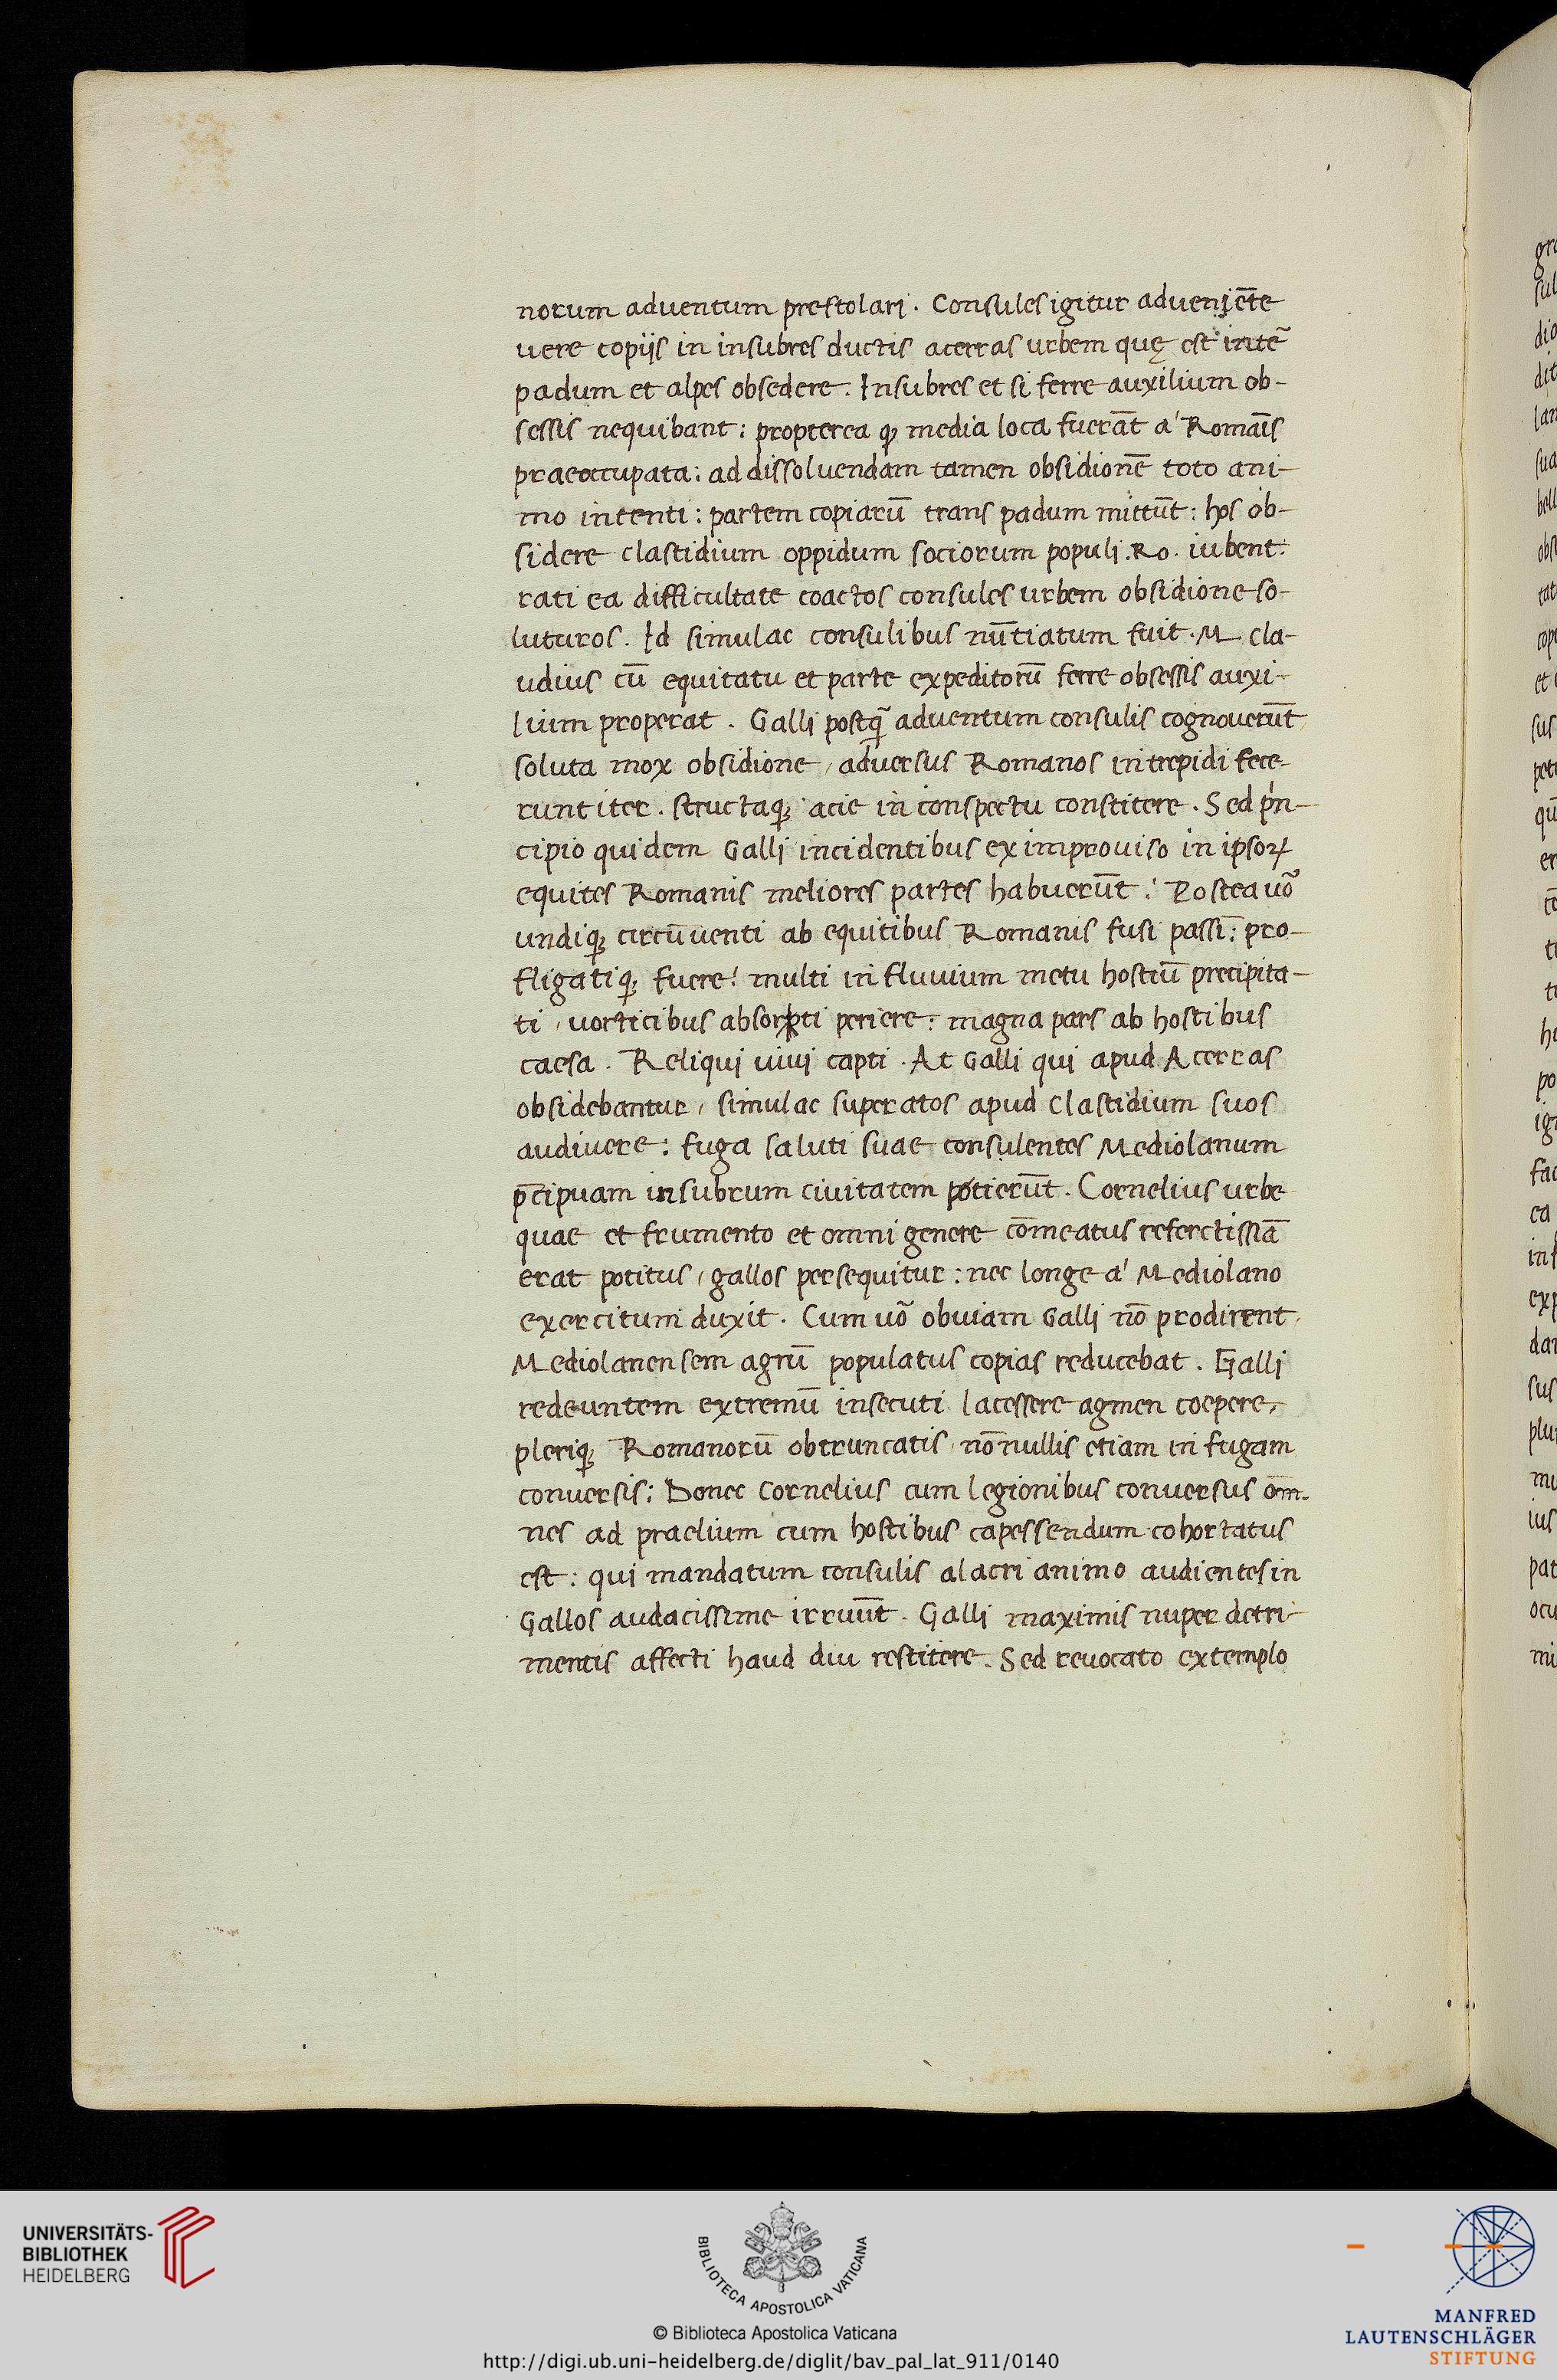 norum adventum prestolari. Consules igitur advenįēte
vere copijs in insubres ductis acerras urbem quę est int̄e
padum et alpes obsedere. Insubres et si ferre auxilium ob-
sessis nequibant: propterea ꝙ media loca fuerāt a' Romāīs
praeoccupata: ad dissoluendam tamen obsidionē toto ani-
mo intenti: partem copiarū trans padum mittūt: hos ob-
sidere clastidium oppidum sociorum populi .Ro. iubent:
rati ea difficultate coactos consules urbem obsidione so-
luturos. Id simulac consulibus nūtiatum fuit. M. cla-
udius cū equitatu et parte expeditorū ferre obsessis auxi-
lium properat. Galli postq̄ adventum consulis cognouerūt
soluta mox obsidione, adversus Romanos intrepidi fece-
runt iter. structaq; acie in conspectu constitere. Sed prin-
cipio quidem Galli incidentibus ex improviso in ipsoꝝ
equites Romanis meliores partes habuerūt: Postea uō
undiq; circūventi ab equitibus Romanis fusi passī: pro-
fligatiq; fuere: multi in fluvium metu hostiū precipita-
ti, vorticibus absorpti periere: magna pars ab hostibus
caesa. Reliqui uiui capti. At Galli qui apud Acerras
obsidebantur, simulac superatos apud Clastidium suos
audivere: fuga saluti suae consulentes Mediolanum
p̄cipuam insubrum civitatem potierūt. Cornelius urbe
quae et frumento et omni genere cōmeatus refertissīā
erat potitus, gallos persequitur: nec longe a' Mediolano
exercitum duxit. Cum uō obviam Galli nō prodirent,
Mediolanensem agrū populatus copias reducebat. Galli
redeuntem extremū insecuti lacessere agmen coepere,
pleriq; Romanorū obtruncatis, nōnullis etiam in fugam
conversis: Donec Cornelius cum legionibus conversus om̄-
nes ad praelium cum hostibus capessendum cohortatus
est: qui mandatum consulis alacri animo audientes in
Gallos audacissime irruūt. Galli maximis nuper detri-
mentis affecti haud diu restitere. Sed revocato extemplo
UNIVERSITÄTS-
BIBLIOTHEK
HEIDELBERG
BIBLIOTECA APOSTOLICA VATICANA
© Biblioteca Apostolica Vaticana
http://digi.ub.uni-heidelberg.de/diglit/bav_pal_lat_911/0140
MANFRED
LAUTENSCHLÄGER
STIFTUNG